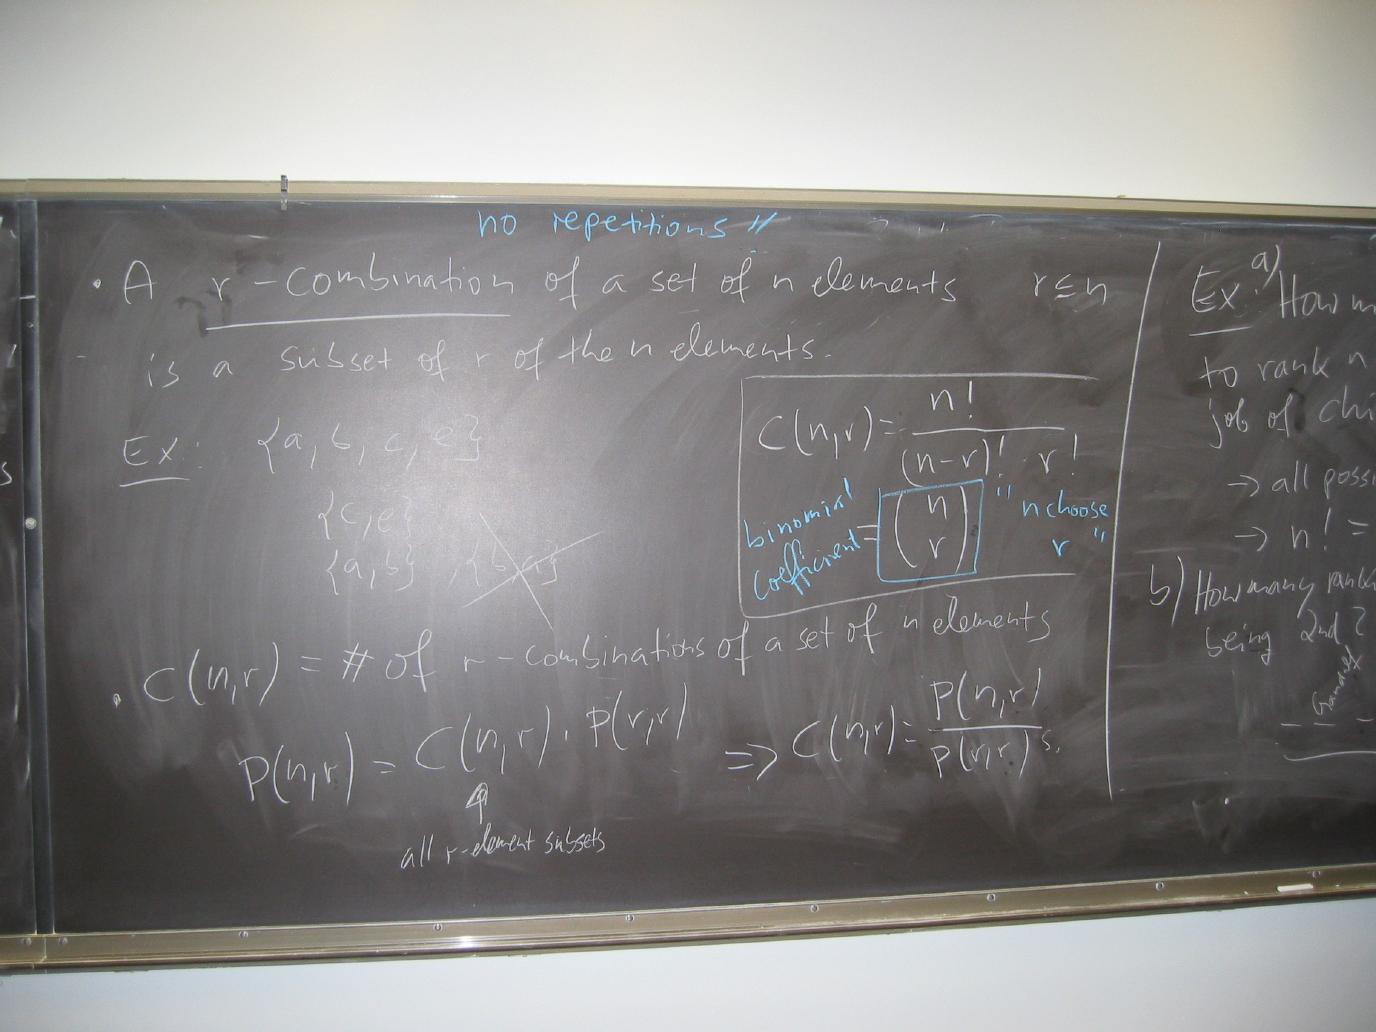 no repetitions "
• A r-combination of a set of n elements r ≤ n
is a subset of r of the n elements.
Ex: {a, b, c, e}
{c, e}
{a, b} , {b,
C(n,r) = n! / (n-r)! · r!
binomial coefficient = (n r) "n choose r"
• C(n,r) = # of r-combinations of a set of n elements
P(n,r) = C(n,r) · P(r,r) => C(n,r) = P(n,r) / P(r,r)
all r-element subsets
Ex: a) How m
to rank n
job of chi
→ all possi
→ n! =
b) How many rank
being 2nd?
Gandalf
s